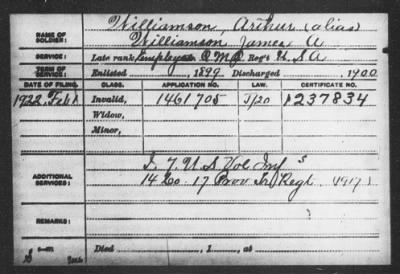 Williamson, Arthur (alias)
NAME OF SOLDIER:
Williamson James A
SERVICE:
Late rank, Employee Q.M.D, Reg't U.S.A
TERM OF SERVICE:
Enlisted 1899, Discharged 1900
DATE OF FILING. CLASS. APPLICATION NO. LAW. CERTIFICATE NO.
1922, Feb Invalid, 1461705 237834
Widow,
Minor,
ADDITIONAL SERVICES:
7 U S Vol Inf
14 Co. 17 Prov Regt
REMARKS:
Died , 1 , at